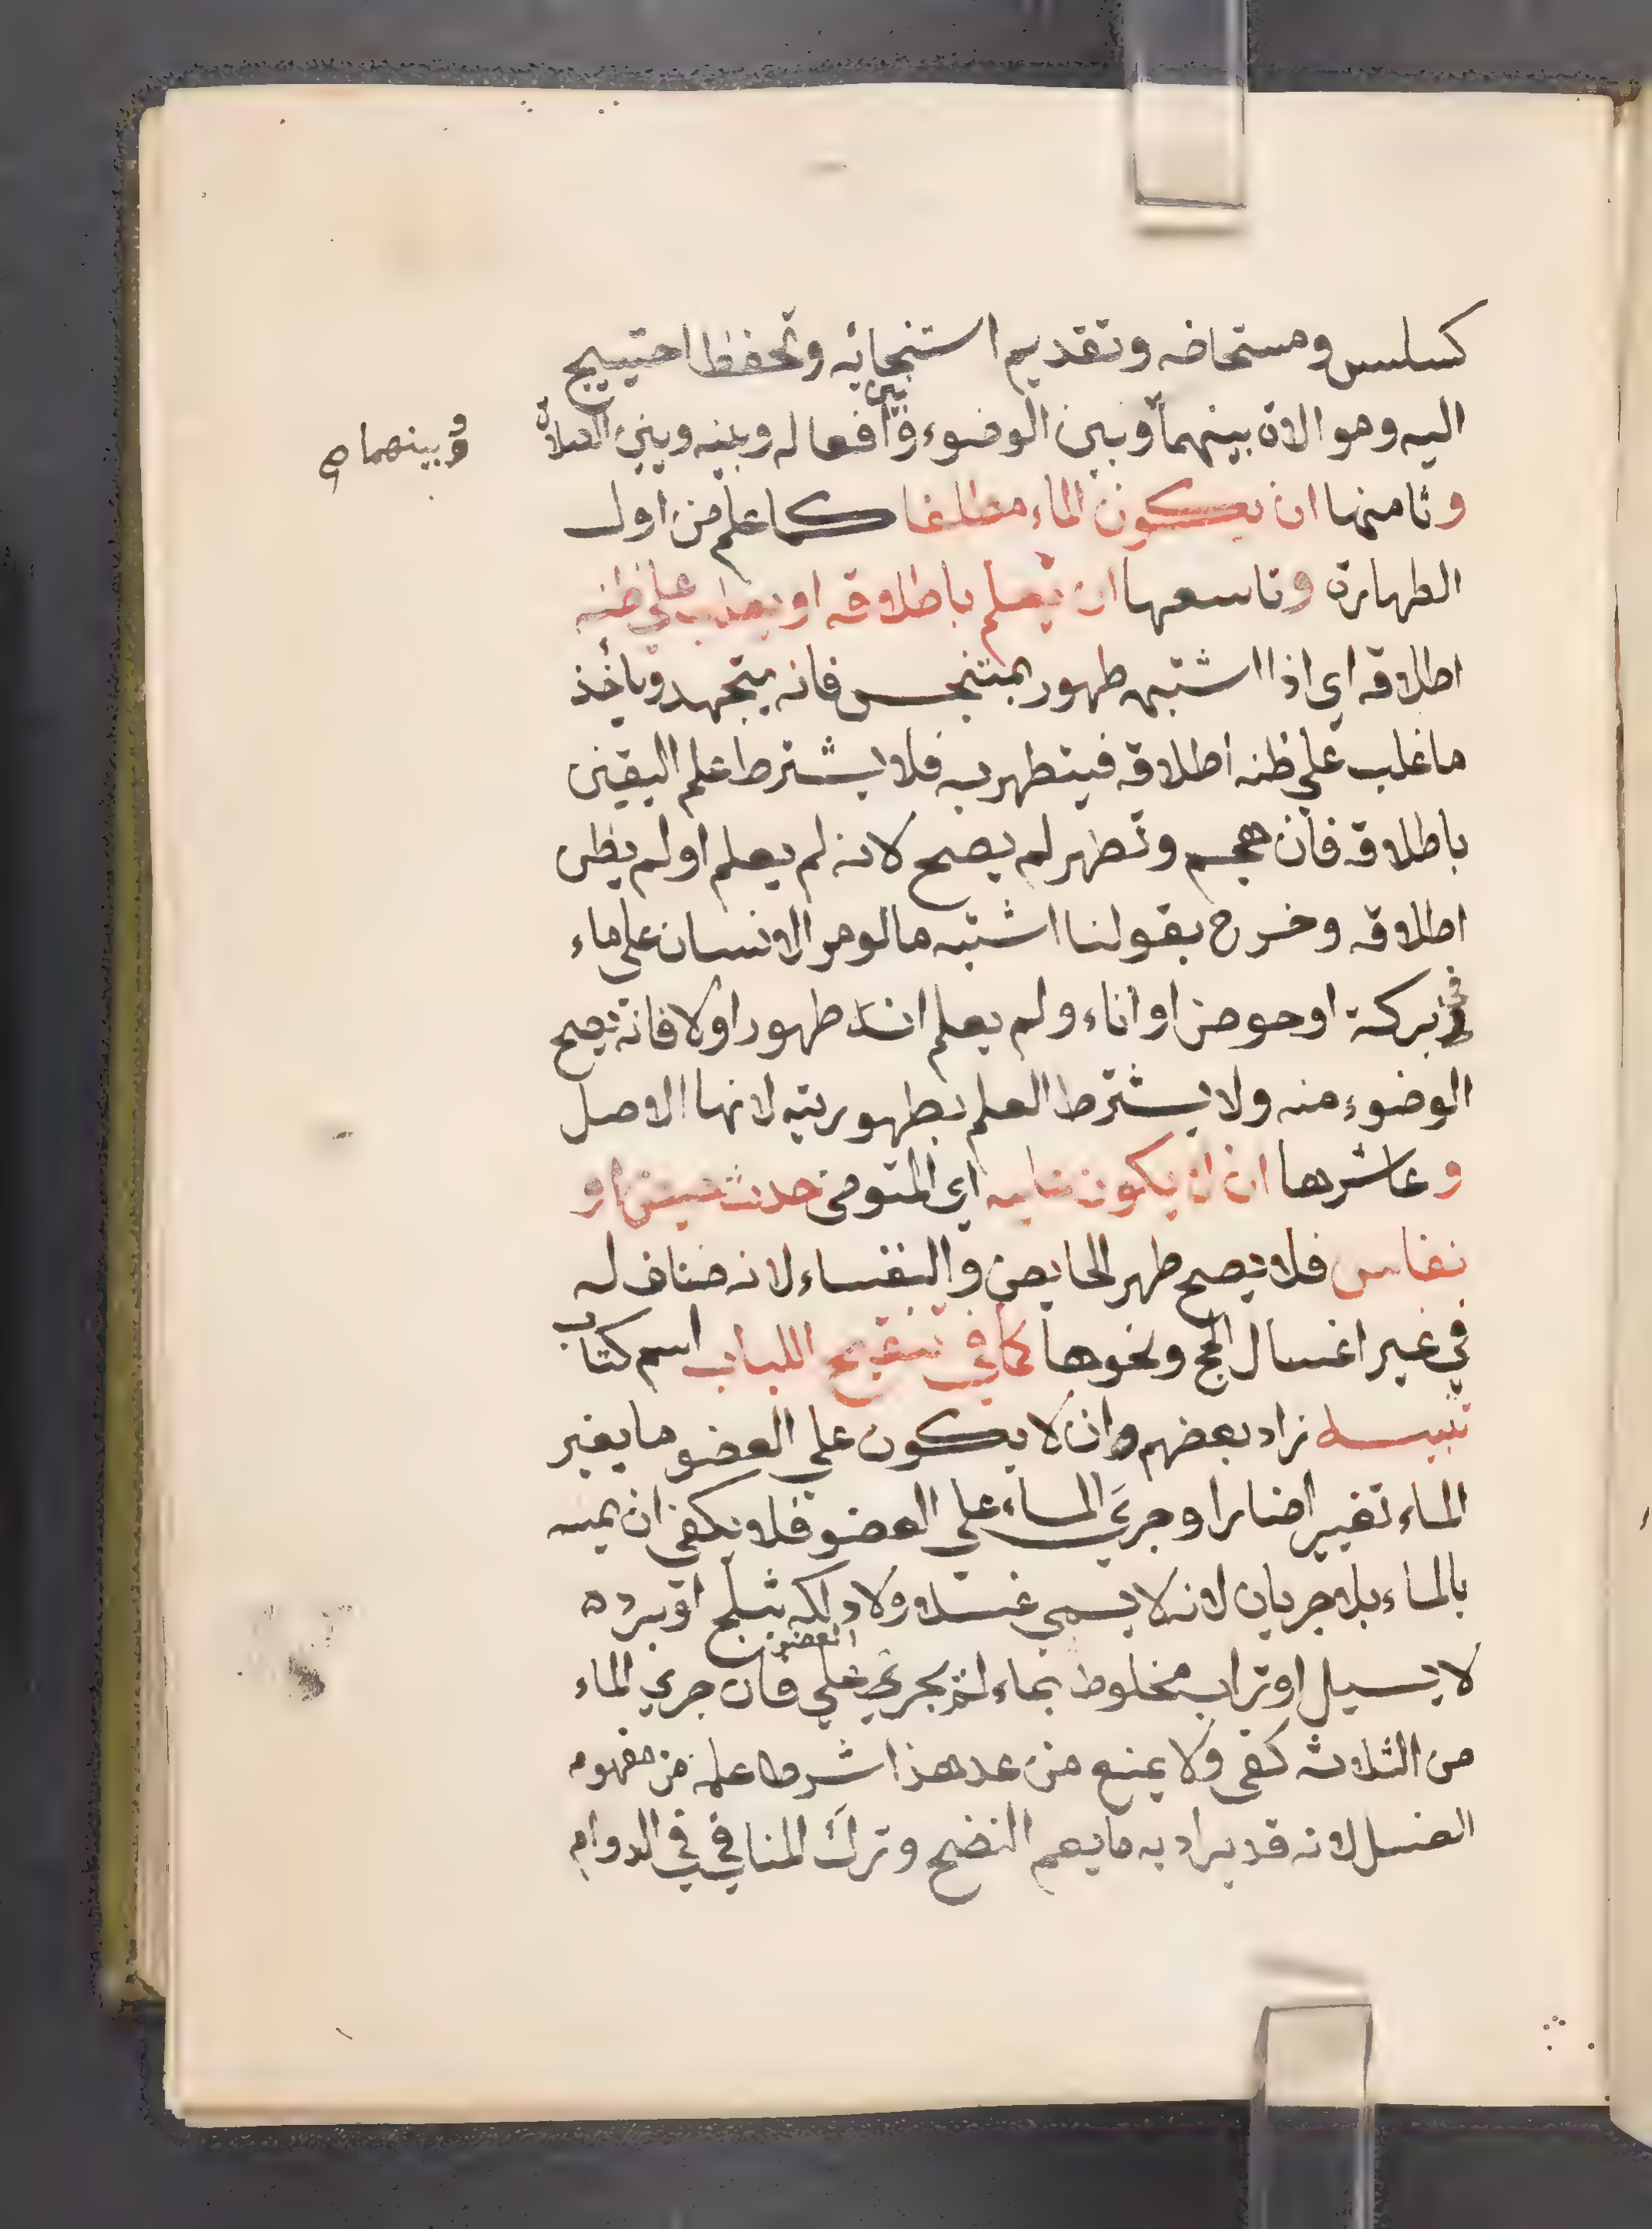 كسلس ومستحاضه وتقديم استنجائه وتحفظ احتييج
اليه وموالاة بينهما وبين الوضوء وبين افعاله وبينه وبين الصلاة
وبينهما صح
وثامنها ان يكون الماء مطلقا كما علم من اول
الطهارة وتاسعها ان يعلم باطلاقه او يغلب على ظنه
اطلاقه اي اذا اشتبه طهور بمتنجس فانه يتجهد وياخذ
ما غلب على ظنه اطلاقه فيتطهر به فلا يشترط علم اليقين
باطلاقه فان هجم وتطهر لم يصح لانه لم يعلم او لم يظن
اطلاقه وخرج بقولنا اشتبه ما لو مر الانسان على ماء
في بركة او حوض او اناء ولم يعلم انه طهور او لا فانه يصح
الوضوء منه ولا يشترط العلم بطهوريته لانها الاصل
وعاشرها ان لا يكون عليه اي المتوضئ حدث حيض او
نفاس فلا يصح طهر الحايض والنفساء لانه مناف له
في غير اغسال الحج ونحوها كما في تنقيح اللباب اسم كتاب
تنبيه زاد بعضهم وان لا يكون على العضو ما يغير
الماء تغيير اضارا وجري الماء على العضو فلا يكفي ان يمسه
بالماء بلا جريان لانه لا يسمى غسلا ولا دلكه بثلج او برده
لا يسيل او تراب مخلوط بماء لم يجر على العضو فان جرى الماء
من الثلاث كفى ولا يمنع من عد هذا شرط علمه من مفهوم
الغسل لانه قد يراد به ما يعم النضح وترك المنافي في الدوام